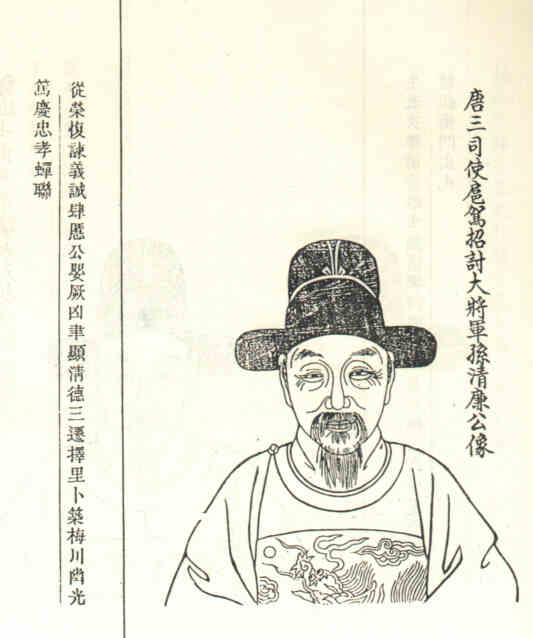 唐三司使扈駕招討大將軍孫清廉公像
從榮愎諫義誠肆慝公嬰厥凶聿顯清德三遷擇里卜築梅川幽光
篤慶忠孝蟬聯